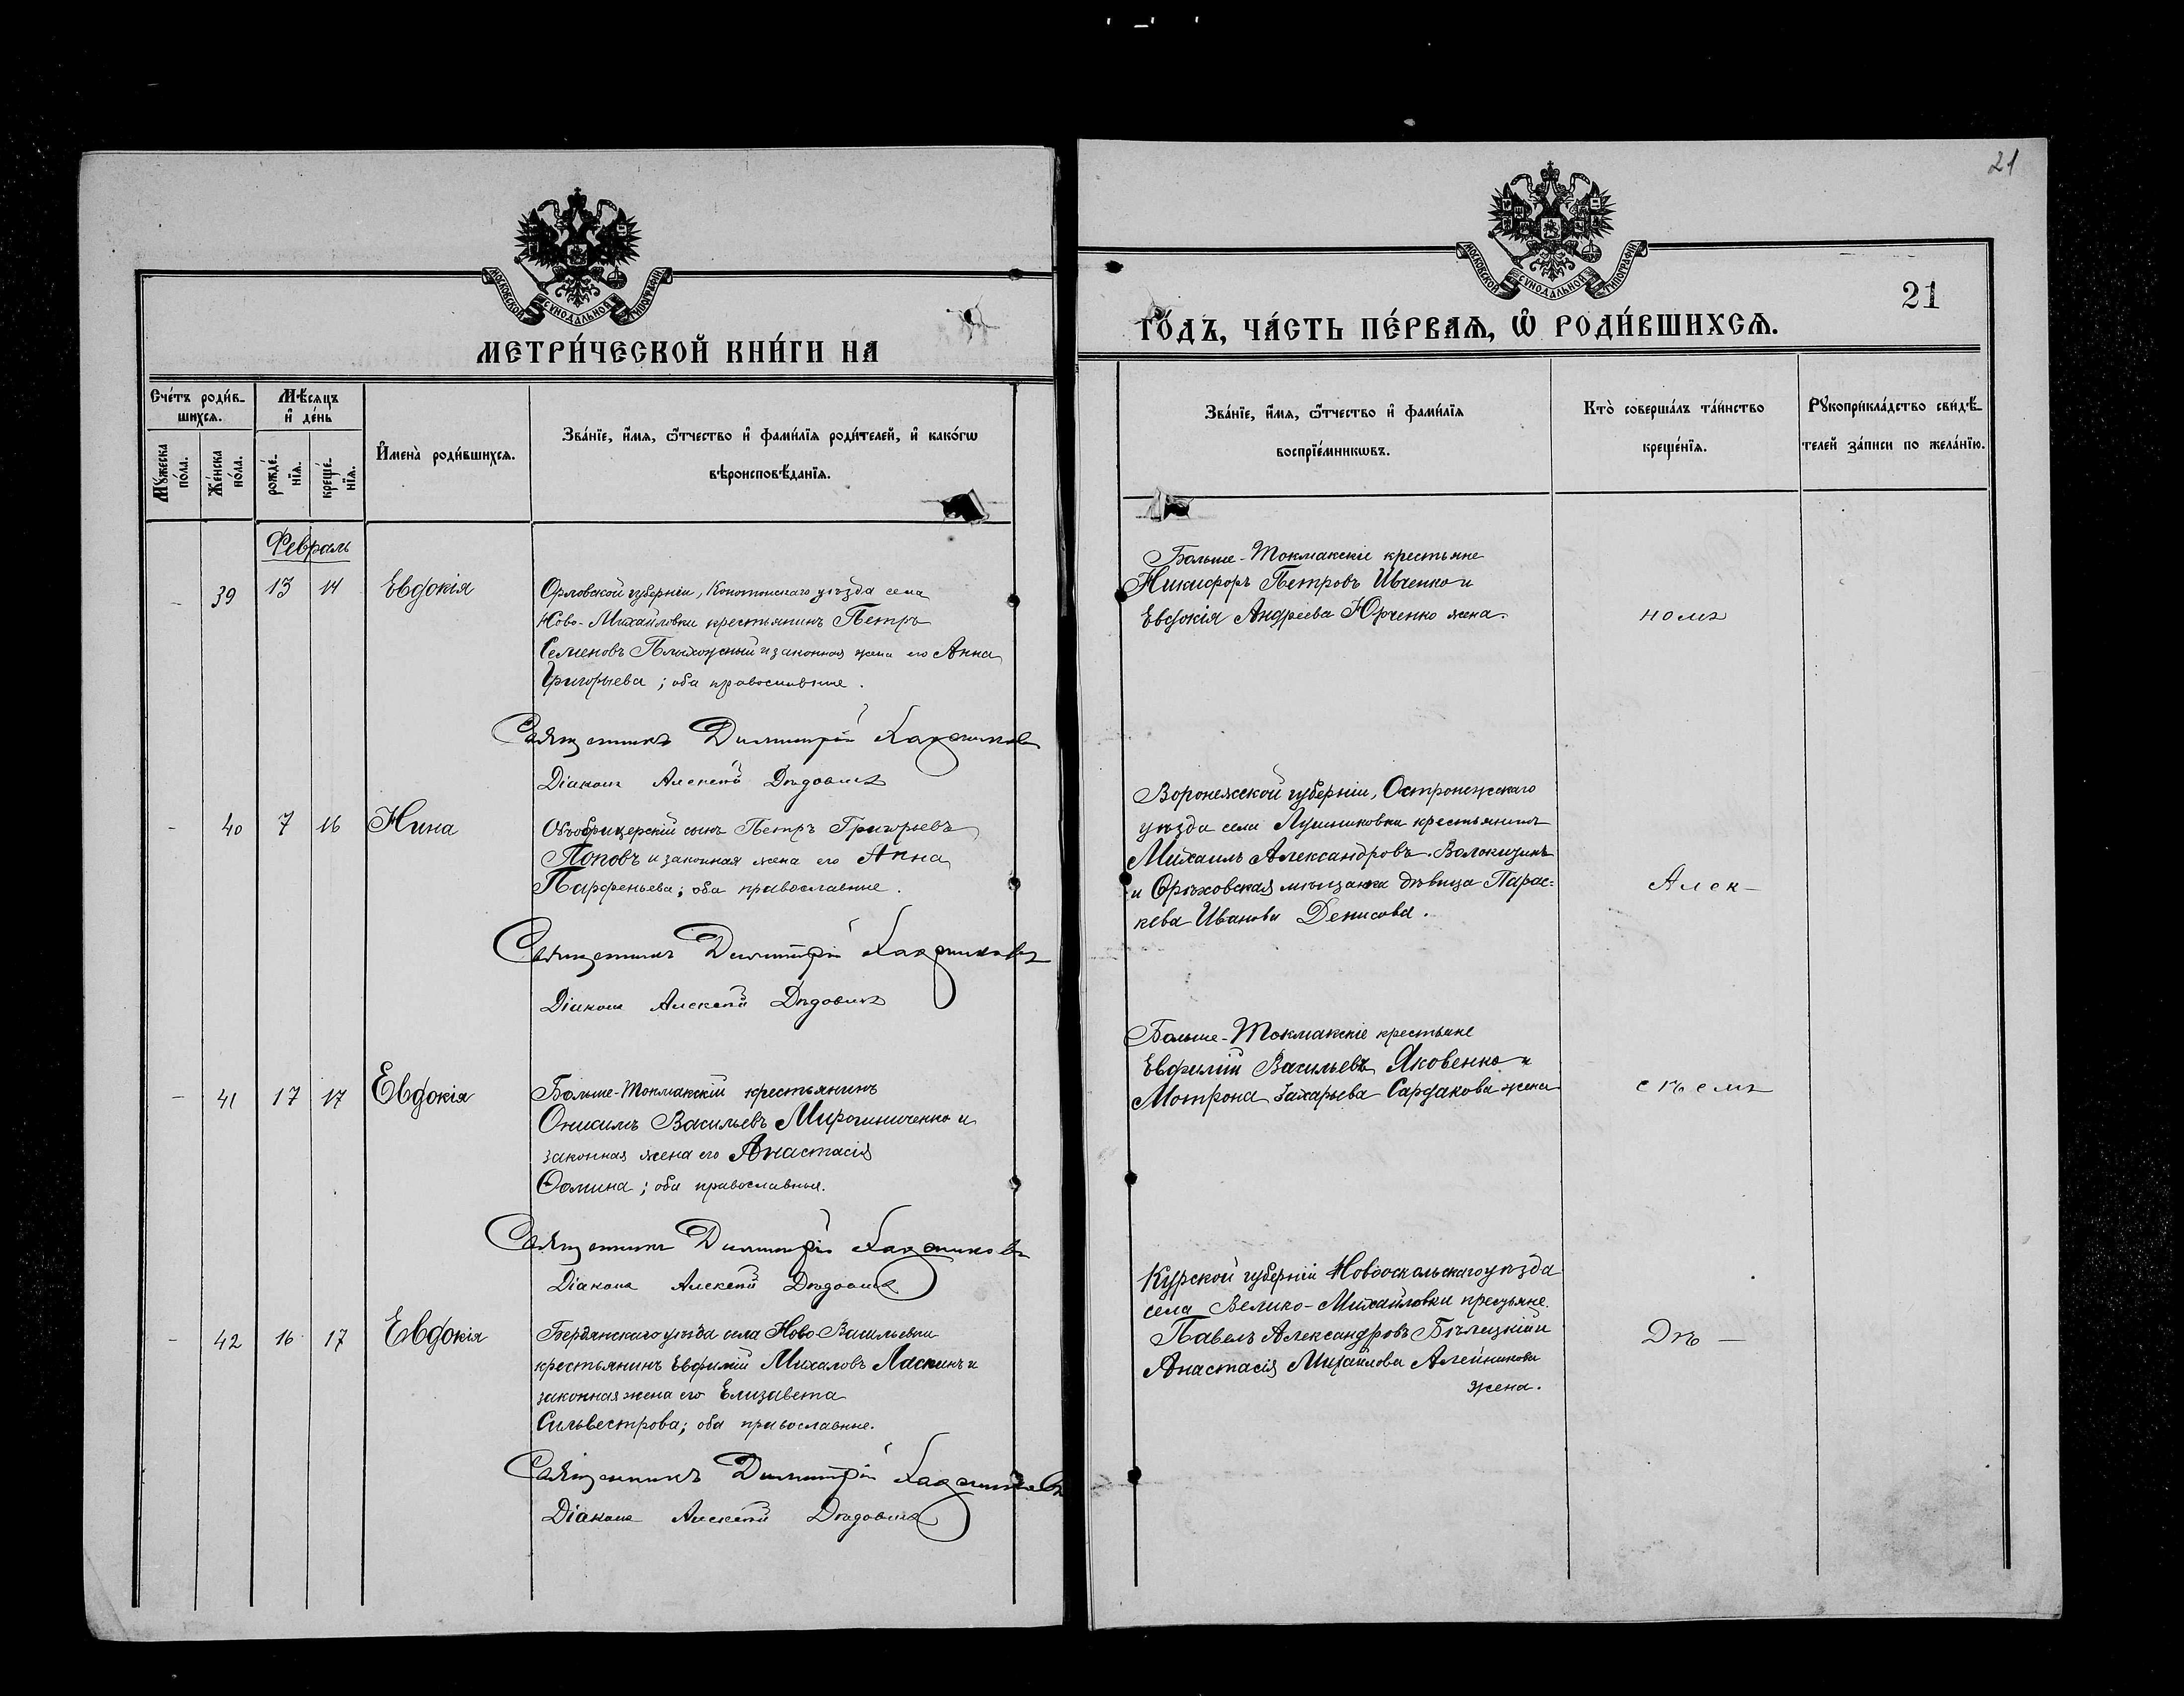 21
МОСКОВСКОЙ СУНОДАЛЬНОЙ ТИПОГРАФІИ
МЕТРИ́ЧЕСКОЙ КНИ́ГИ НА
Сче́тъ роди́в-
шихся.
Мѣ́сяцъ
и҆ де́нь
Мꙋ́жеска
по́ла.
Же́нска
по́ла.
рожде́-
нїѧ.
креще́-
нїѧ.
И҆мена̀ роди́вшихсѧ.
Зва́нїе, и҆́мѧ, ѻ҆́тчество и҆ фами́лїѧ роди́телей, и҆ како́гѡ
вѣроисповѣ́данїѧ.
Февраль
- 39 13 14 Евдокія
Орловской губерніи, уѣзда села
Ново-Михайловки крестьянинъ Петръ
Семеновъ и законная жена его Анна
Григорьева; оба православные.
Священникъ Димитрій
Діаконъ Алексѣй
- 40 7 16 Нина
Оберофицерскій сынъ Петръ Григорьевъ
Поповъ и законная жена его Анна
Парфеньева; оба православные.
Священникъ Димитрій
Діаконъ Алексѣй
- 41 17 17 Евдокія
Больше-Токмакскій крестьянинъ
Онисимъ Васильевъ Мирошниченко и
законная жена его Анастасія
Ѳомина; оба православныя.
Священникъ Димитрій
Діаконъ Алексѣй
- 42 16 17 Евдокія
Бердянскаго уѣзда села Ново-Васильевки
крестьянинъ Евфимій Михаловъ Ласкинъ и
законная жена его Елизавета
Сильвестрова; оба православные.
Священникъ Димитрій
Діаконъ Алексѣй
МОСКОВСКОЙ СУНОДАЛЬНОЙ ТИПОГРАФІИ
21
ГО́ДЪ, ЧА́СТЬ ПЕ́РВАѦ, Ѡ҆ РОДИ́ВШИХСѦ.
Зва́нїе, и҆́мѧ, ѻ҆́тчество и҆ фами́лїѧ
воспрїе́мникѡвъ.
Кто̀ соверша́лъ та́инство
креще́нїѧ.
Рꙋкоприкла́дство свидѣ́-
телей за́писи по жела́нїю.
Больше-Токмакскіе крестьяне
Никифоръ Петровъ Ивченко и
Евдокія Андреева Юрченко жена.
номъ
Воронежской губерніи, Острогожскаго
уѣзда села крестьянинъ
Михаилъ Александровъ Волокитинъ
и Орѣховская мѣщанка дѣвица Парас-
кева Иванова Денисова.
Алек-
Больше-Токмакскіе крестьяне
Евфимій Васильевъ Яковенко и
Мотрона Захарьева Сардакова жена
сѣемъ
Курской губерніи Новооскольскаго уѣзда
села Велико-Михайловки крестьяне
Павелъ Александровъ Бѣлецкій и
Анастасія Михайлова Алейникова
жена.
Дѣ-